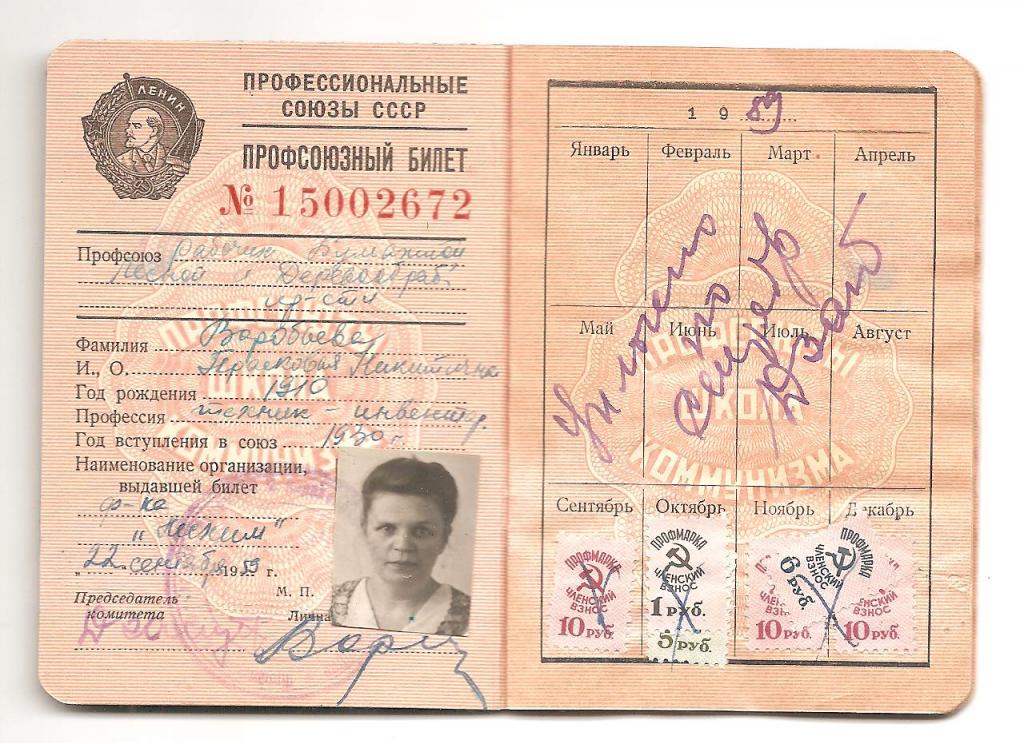 ЛЕНИН
ПРОФЕССИОНАЛЬНЫЕ
СОЮЗЫ СССР
ПРОФСОЮЗНЫЙ БИЛЕТ
№ 15002672
Профсоюз Рабочих Бумажной
Лесной и Деревообраб.
пр-сти
Фамилия Воробьева
И., О. Прасковия Никитична
Год рождения 1910
Профессия техник-
Год вступления в союз 1930 г.
Наименование организации,
выдавшей билет
ф-ка
22 сентября 1959 г.
М. П.
Председатель
комитета
Лична
ПРОФСОЮЗЫ
ШКОЛА
КОММУНИЗМА
19 59
Январь Февраль Март Апрель
Уплочено
по
Май Июнь Июль Август
ПРОФСОЮЗЫ
ШКОЛА
КОММУНИЗМА
Сентябрь Октябрь Ноябрь Декабрь
ЧЛЕНСКИЙ
ВЗНОС
10 РУБ.
ПРОФМАРКА
ЧЛЕНСКИЙ
ВЗНОС
1 РУБ.
5 РУБ.
10 РУБ.
ПРОФМАРКА
ЧЛЕНСКИЙ
ВЗНОС
6 РУБ.
ЧЛЕНСКИЙ
ВЗНОС
10 РУБ.